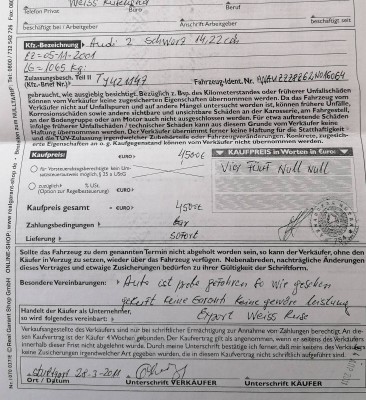 Telefon Privat
Weiss Russland
Beruf
beschäftigt bei / Arbeitgeber
Anschrift-Arbeitgeber
beschäftigt seit
Kfz.-Bezeichnung Audi 2 Schwarz 1422cc
EZ=05-11-2001
LG=1065 kg
Zulassungsbesch. Teil II
(Kfz.-Brief Nr.) TY421147 Fahrzeug-Ident. Nr.
gebraucht, wie ausgiebig besichtigt. Bezüglich z. Bsp. des Kilometerstandes oder früherer Unfallschäden
können vom Verkäufer keine zugesicherten Eigenschaften übernommen werden. Da das Fahrzeug vom
Verkäufer nicht auf Unfallspuren und auf andere Mängel untersucht worden ist, können frühere Unfälle,
Korrosionsschäden sowie andere sichtbare und unsichtbare Schäden z. Bsp. an der Karosserie, am Fahrgestell,
an der Bodengruppe oder am Motor auch nicht ausgeschlossen werden. Für etwa auftretende Schäden
infolge früherer Unfallschäden / technischer Schäden kann aus diesem Grunde vom Verkäufer keine
Haftung übernommen werden. Der Verkäufer übernimmt ferner keine Haftung für die Statthaftigkeit
Konkrete, zugesich-
erte Eigenschaften an o. g. Kaufgegenstand können vom Verkäufer nicht übernommen werden.
Kaufpreis: €URO 4500€
KAUFPREIS in Worten in €uro:
Vier Fünf Null Null
€URO
zuzüglich % USt.
(Option zur Regelbesteuerung) €URO
Kaufpreis gesamt €URO 4500€
Zahlungsbedingungen bar
Lieferung sofort
Sollte das Fahrzeug zu dem genannten Termin nicht abgeholt worden sein, so kann der Verkäufer, ohne den
Käufer in Verzug zu setzen, wieder über das Fahrzeug verfügen. Nebenabreden, nachträgliche Änderungen
dieses Vertrages und etwaige Zusicherungen bedürfen zu ihrer Gültigkeit der Schriftform.
Besondere Vereinbarungen: Auto ist probe gefahren so wie gesehen
gekauft keine Garant keine gewähr leistung
Handelt der Käufer als Unternehmer,
so wird folgendes vereinbart: Export Weiss Russ
Verkaufsangestellte des Verkäufers sind nur bei schriftlicher Ermächtigung zur Annahme von Zahlungen berechtigt. An die-
sen Kaufvertrag ist der Käufer 4 Wochen gebunden. Der Kaufvertrag gilt als angenommen, wenn er seitens des Verkäufers
innerhalb dieser Frist nicht abgelehnt wurde. Durch meine Unterschrift bestätige ich ferner, daß mir seitens des Verkäufers
keine Zusicherungen irgendwelcher Art gegeben wurden, die in diesem Kaufvertrag nicht schriftlich aufgeführt sind.
Stuttgart 28-3-2011
Ort / Datum
Unterschrift VERKÄUFER
Unterschrift KÄUFER
ONLINE-SHOP: www.realgarant-shop.de
©Real Garant Shop GmbH